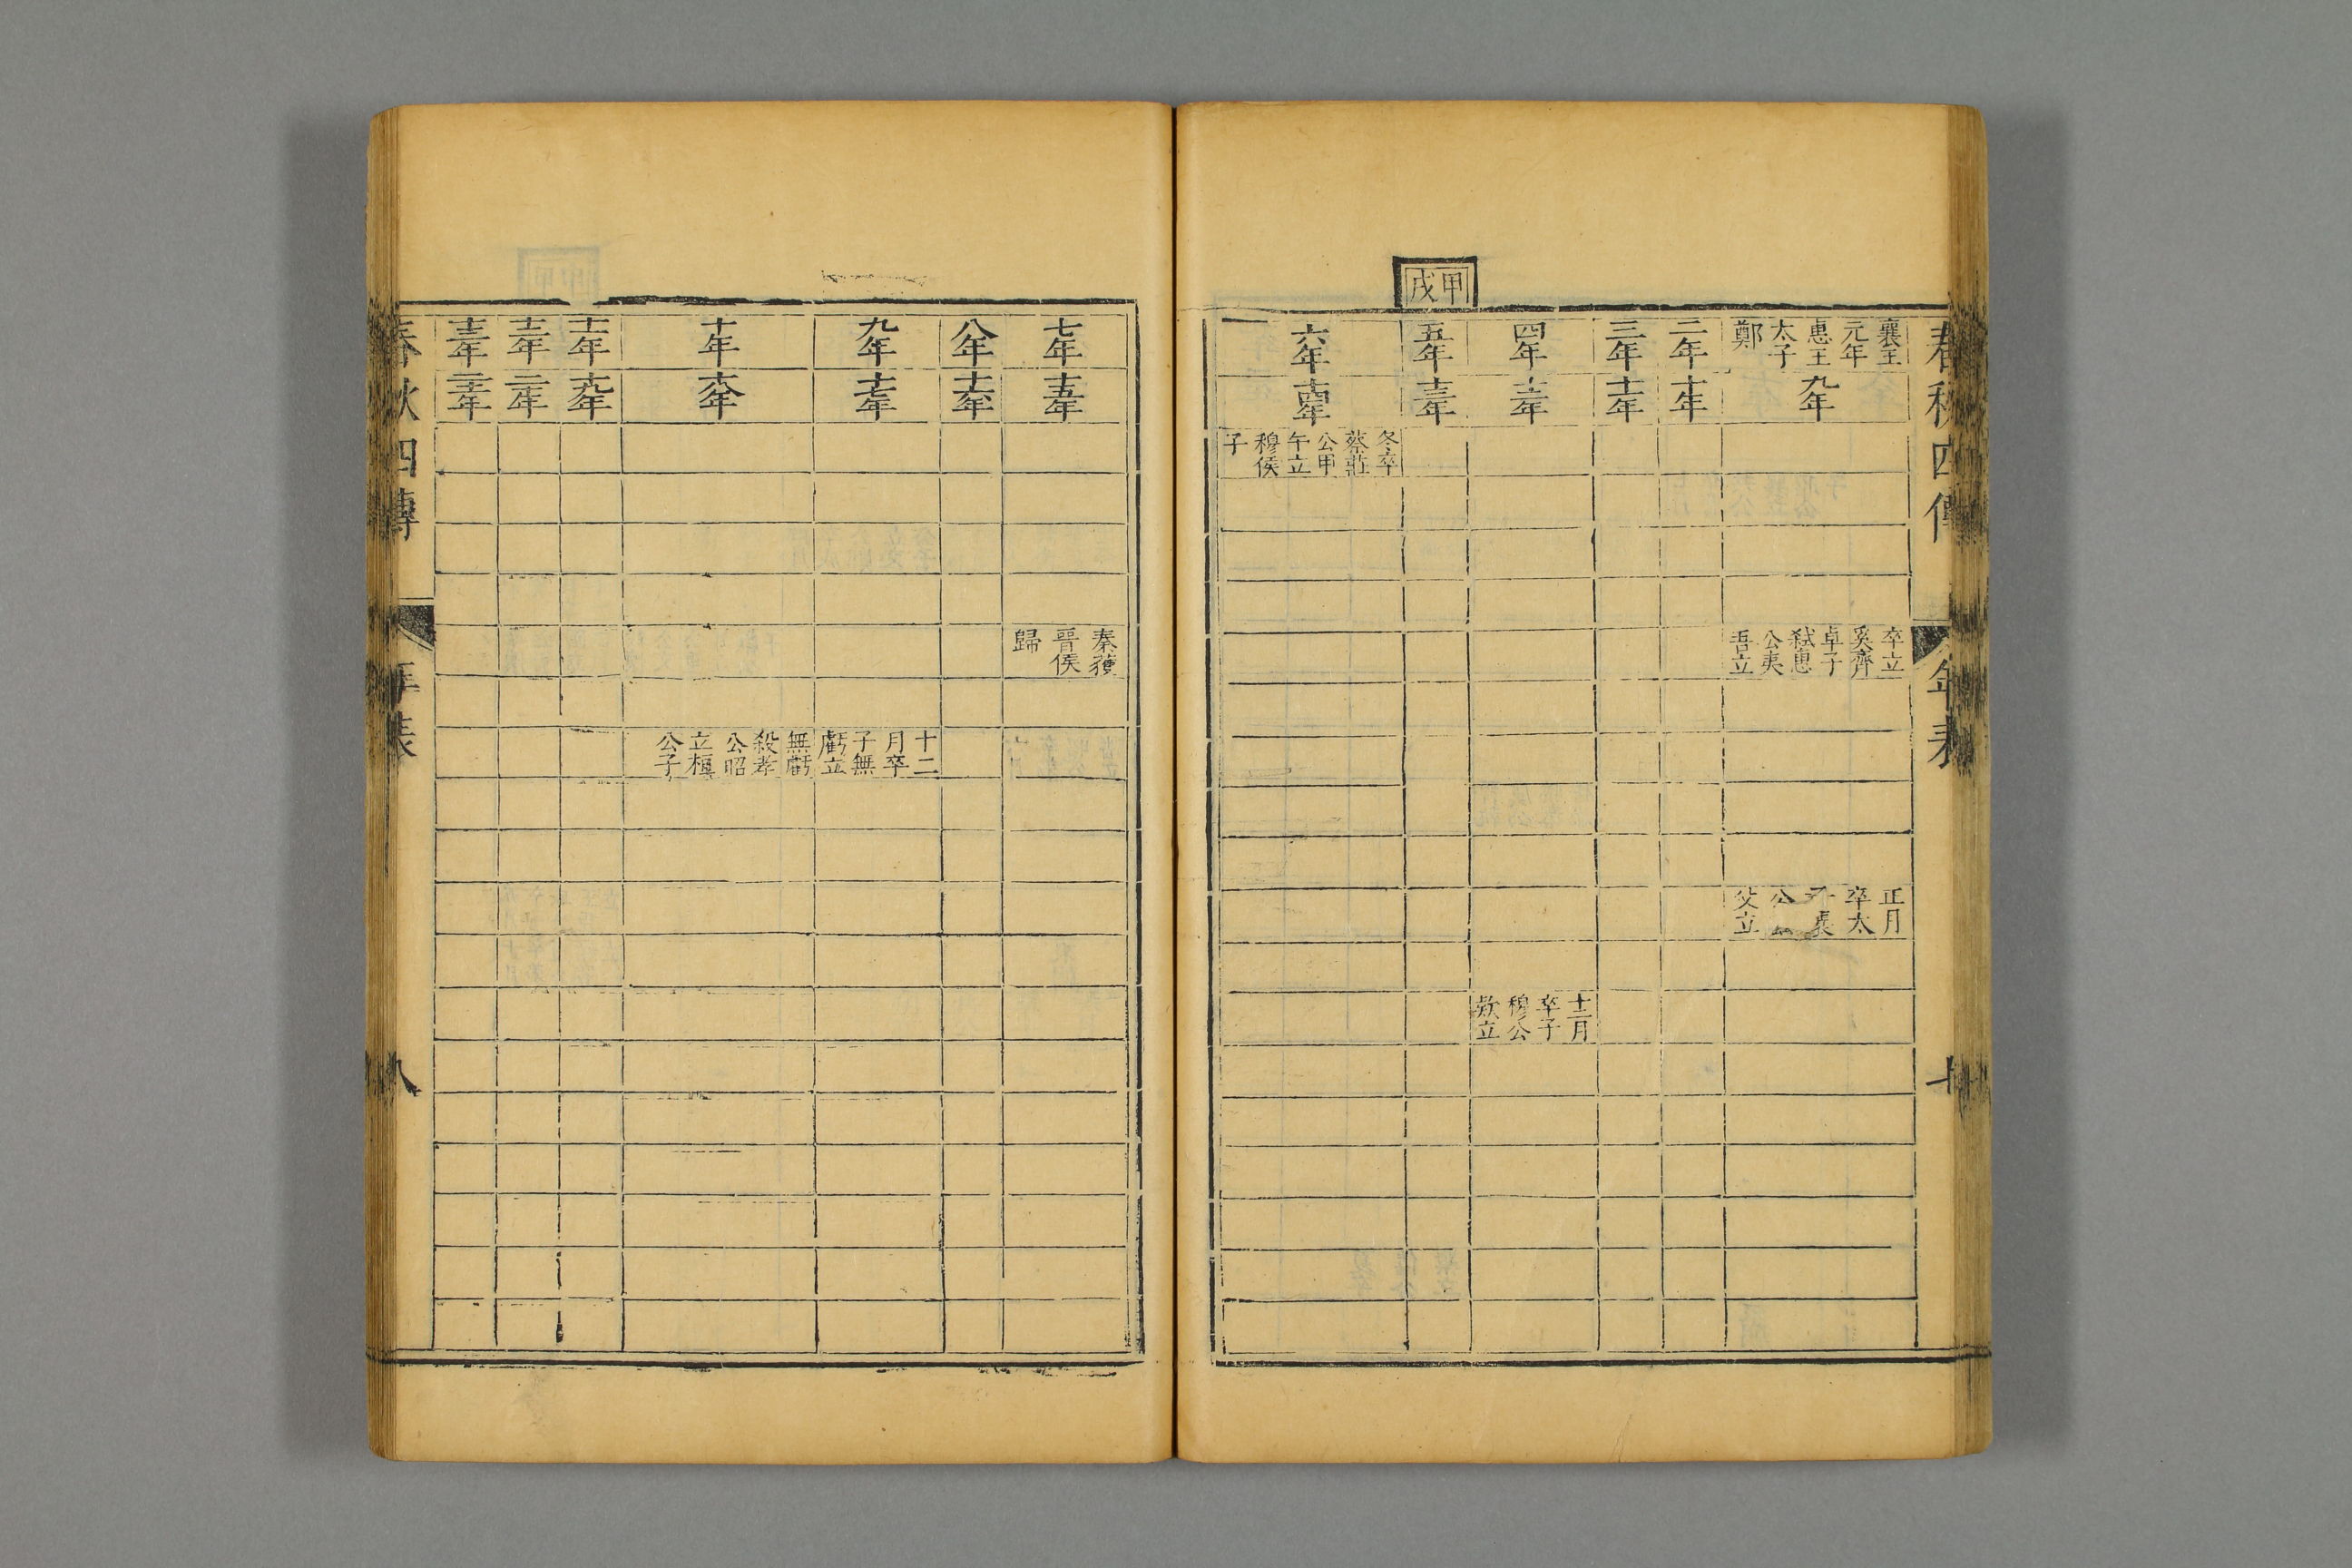 春秋四傳
年表
七
襄王
元年
惠王
太子
鄭
九年
卒立
奚齊
卓子
弒惠
公夷
吾立
正月
卒太
子襄
公
父立
二年
十年
三年
十一年
四年
十二年
十二月
卒子
穆公
欵立
甲戌
五年
十三年
六年
十四年
冬卒
蔡莊
公甲
午立
穆侯
子
七年
十五年
秦獲
晉侯
歸
八年
十六年
九年
十七年
十二
月卒
子無
虧立
十年
十八年
無虧
殺孝
公昭
立桓
公子
十一年
十九年
十二年
二十年
十三年
二十一年
春秋四傳
年表
八